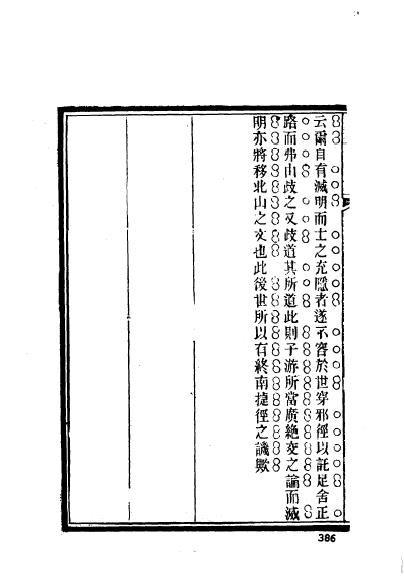 云爾自有滅明而士之充隱者遂不容於世穿邪徑以託足舍正
路而弗由歧之又歧道其所道此則子游所當廣絶交之論而滅
明亦將移北山之文也此後世所以有終南捷徑之譏歟
386